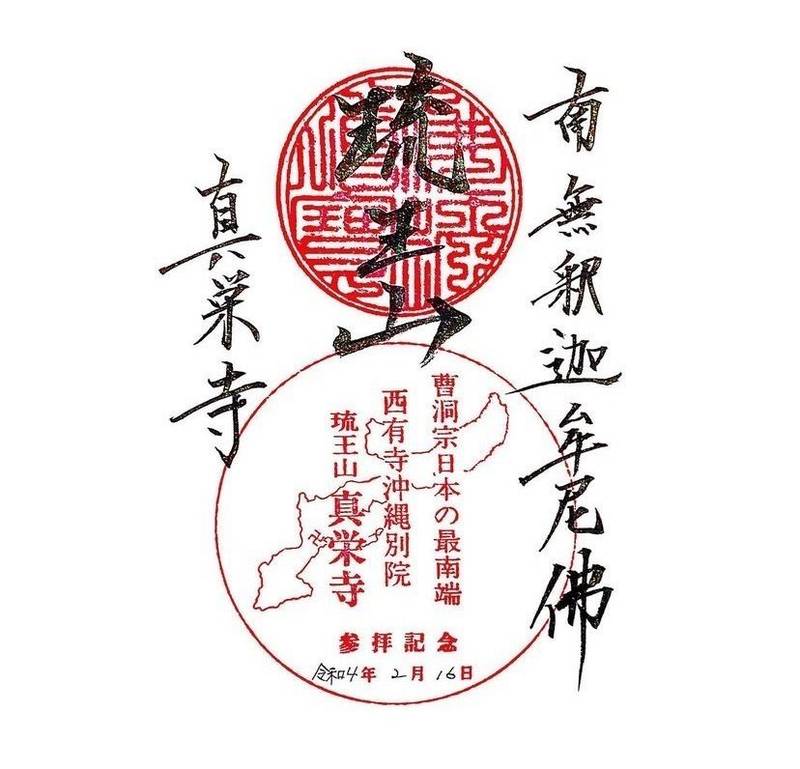 南無釈迦牟尼佛
琉王山
真栄寺
曹洞宗日本の最南端
西有寺沖縄別院
琉王山 真栄寺
参拝記念
令和4年 2月 16日